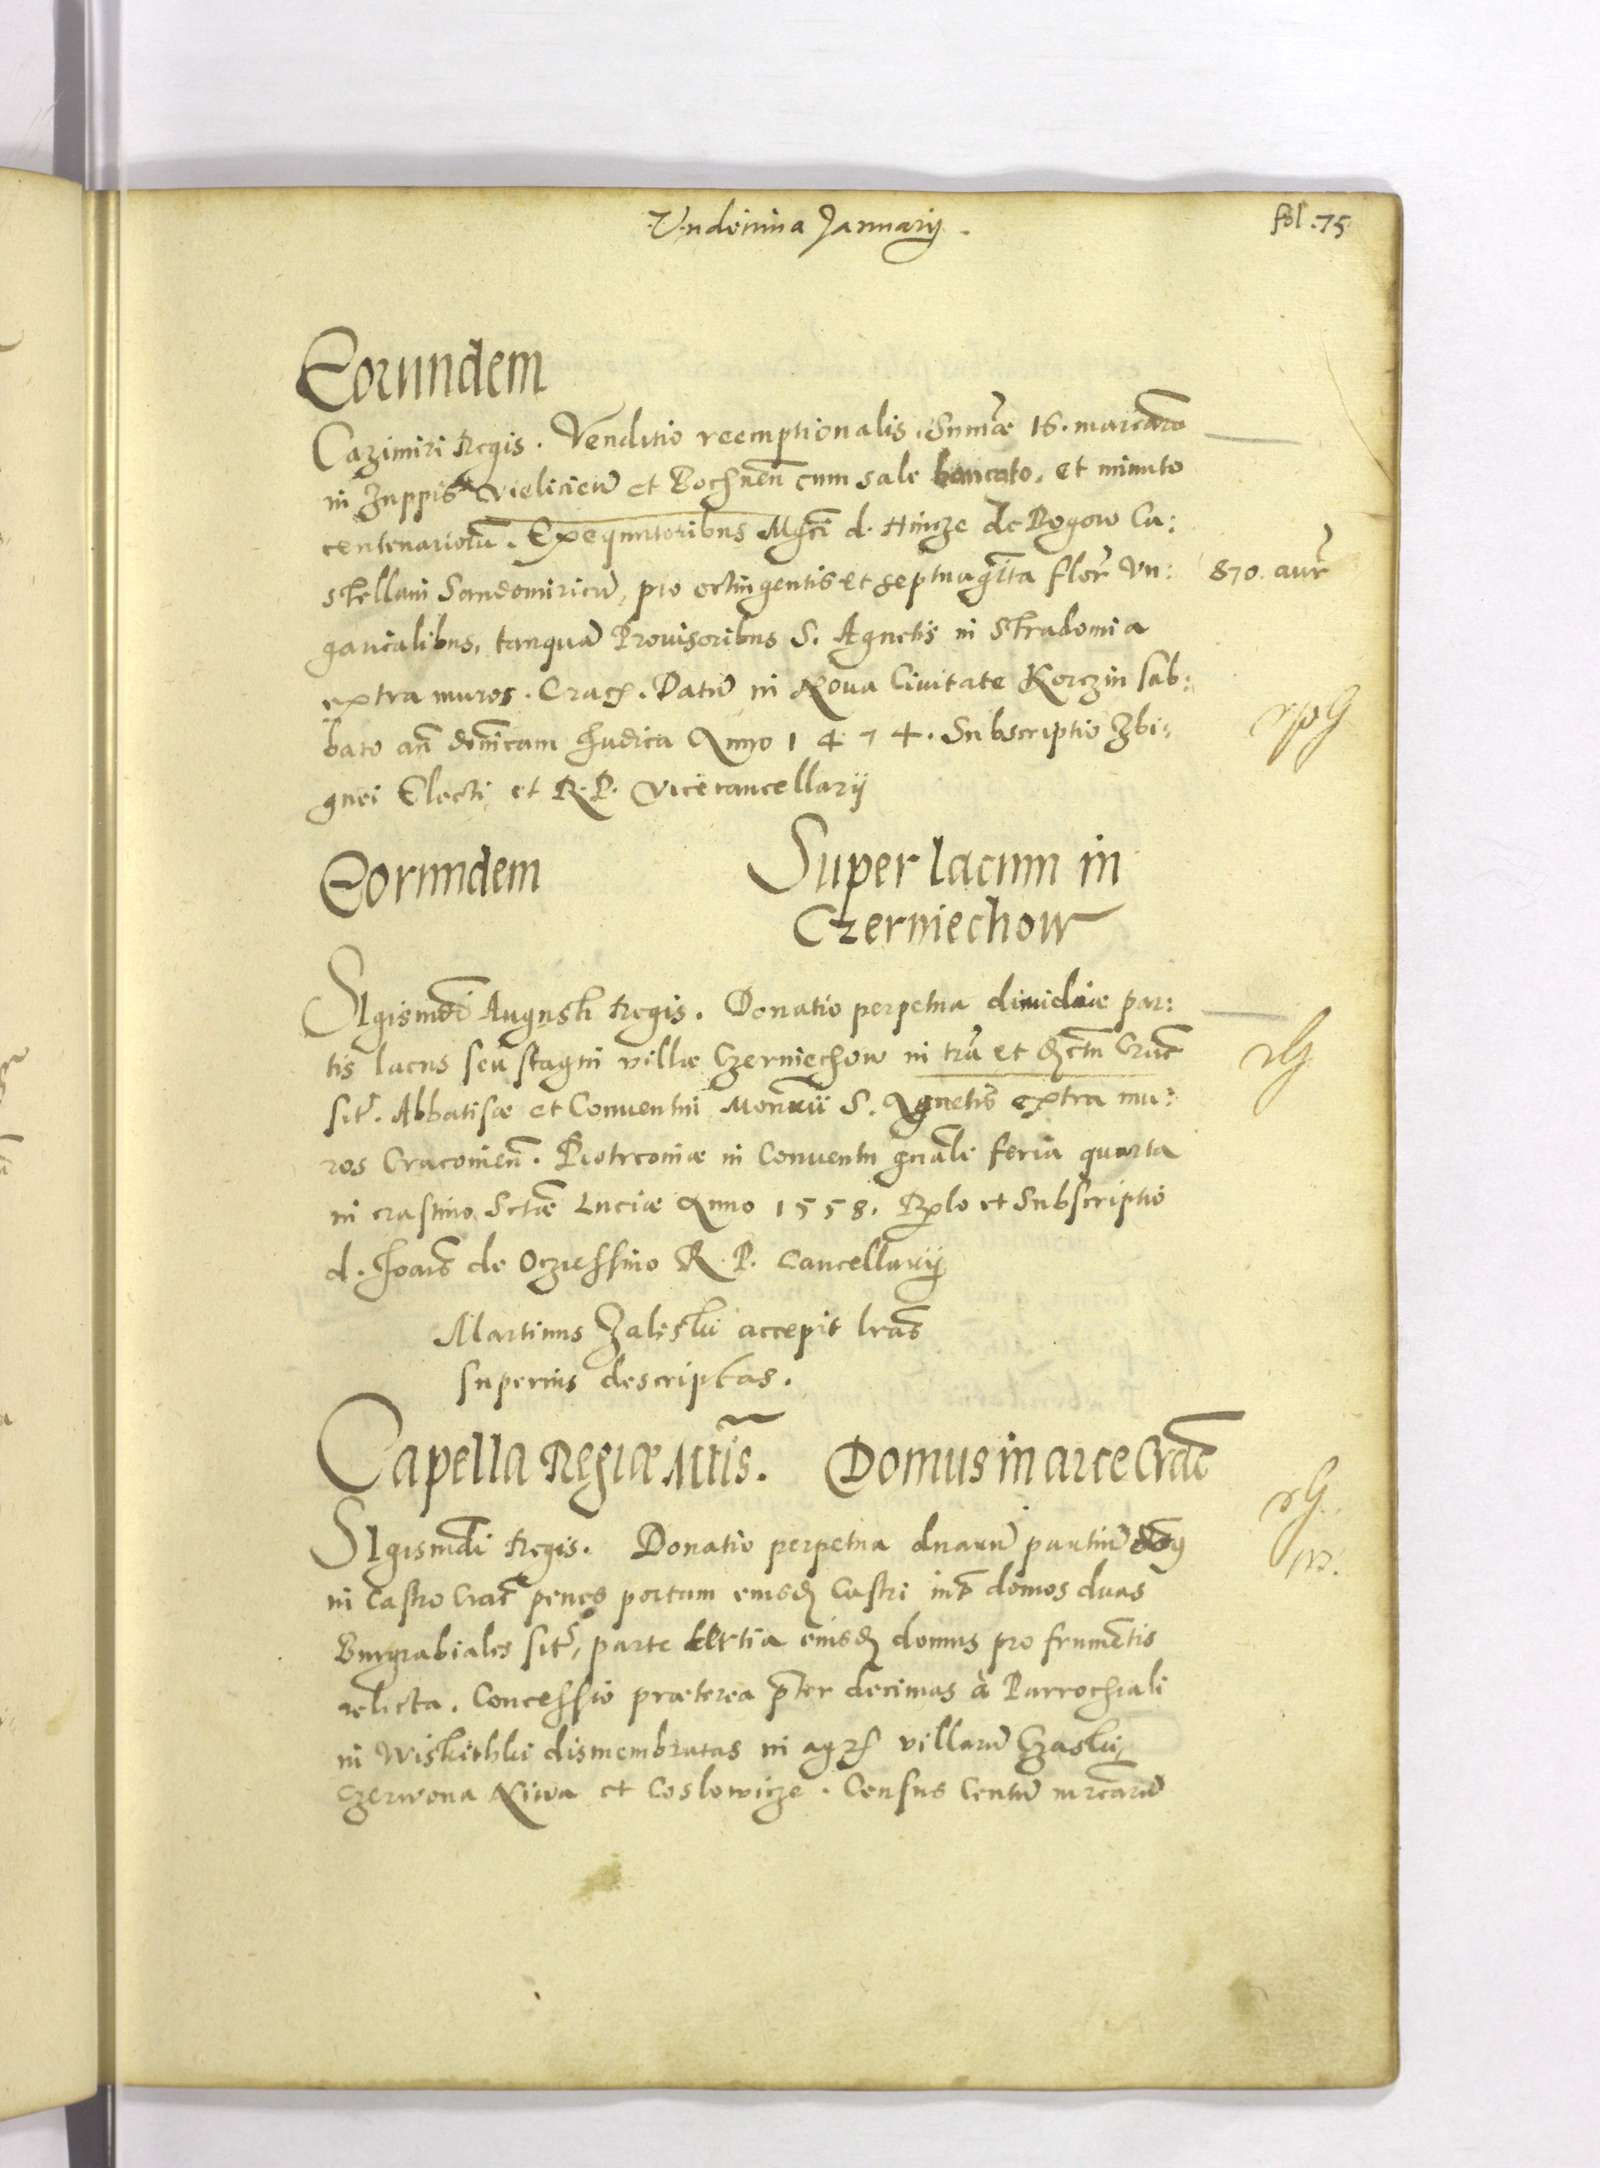 Vndecima Januarij.
fol. 75
Eorundem
Cazimiri Regis. Venditio reemptionalis. Sum̃æ 16. marcarũ
in Zuppis Vielicieñ et Bochneñ cum sale bancato, et minuto
centenariorũ. Exequutoribus Mgc̃i d. Hincze de Rogow Ca:
stellani Sandomirieñ, pro octingentis et septuagĩta flor̃ Vn:
870. aur̃
garicalibus, tanquã Prouisoribus S. Agnetis in Stradomia
extra muros. Crac̃. Datũ in Noua Ciuitate Korczin sab:
bato añ dñicam Judica Anno 1474. Subscriptio Zbi:
gnei Electi, et R. P. Vicecancellarij
Eorundem
Super lacum in
Czerniechow
Sigismũdi Augusti Regis. Donatio perpetua dimidiæ par:
tis lacus seu stagni villæ Czerniechow in tr̃a et dc̃tu Crac̃
sit̃. Abbatisæ et Conuentui Monr̃ii S. Agnetis extra mu:
ros Cracouieñ. Piotrcouiæ in Conuentu gñali feria quarta
in crastino Sctæ Luciæ Anno 1558. Rl̃o et Subscriptio
d. Joañis de Ocziessino R. P. Cancellarij
Martinus Zaliski accepit lr̃as
superius descriptas.
Capella Regiæ Mt̃is.
Domus in arce Crac̃
Sigismũdi Regis. Donatio perpetua duarũ partiũ domꝰ
in Castro Crac̃ penes portam eiusdẽ Castri int̃ domos duas
Burgrabiales sit̃, parte tertia eiusdẽ domus pro frumẽtis
relicta. Concessio præterea p̃ter decimas à Parrochiali
in Wiskithki dismembratas in agris villarũ Czaski,
Czerwona Niwa et Coslowicze. Census Centũ mrcarũ